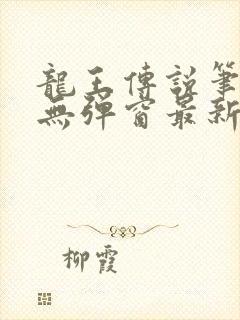 龍王傳說筆
無彈窗最新
柳霞